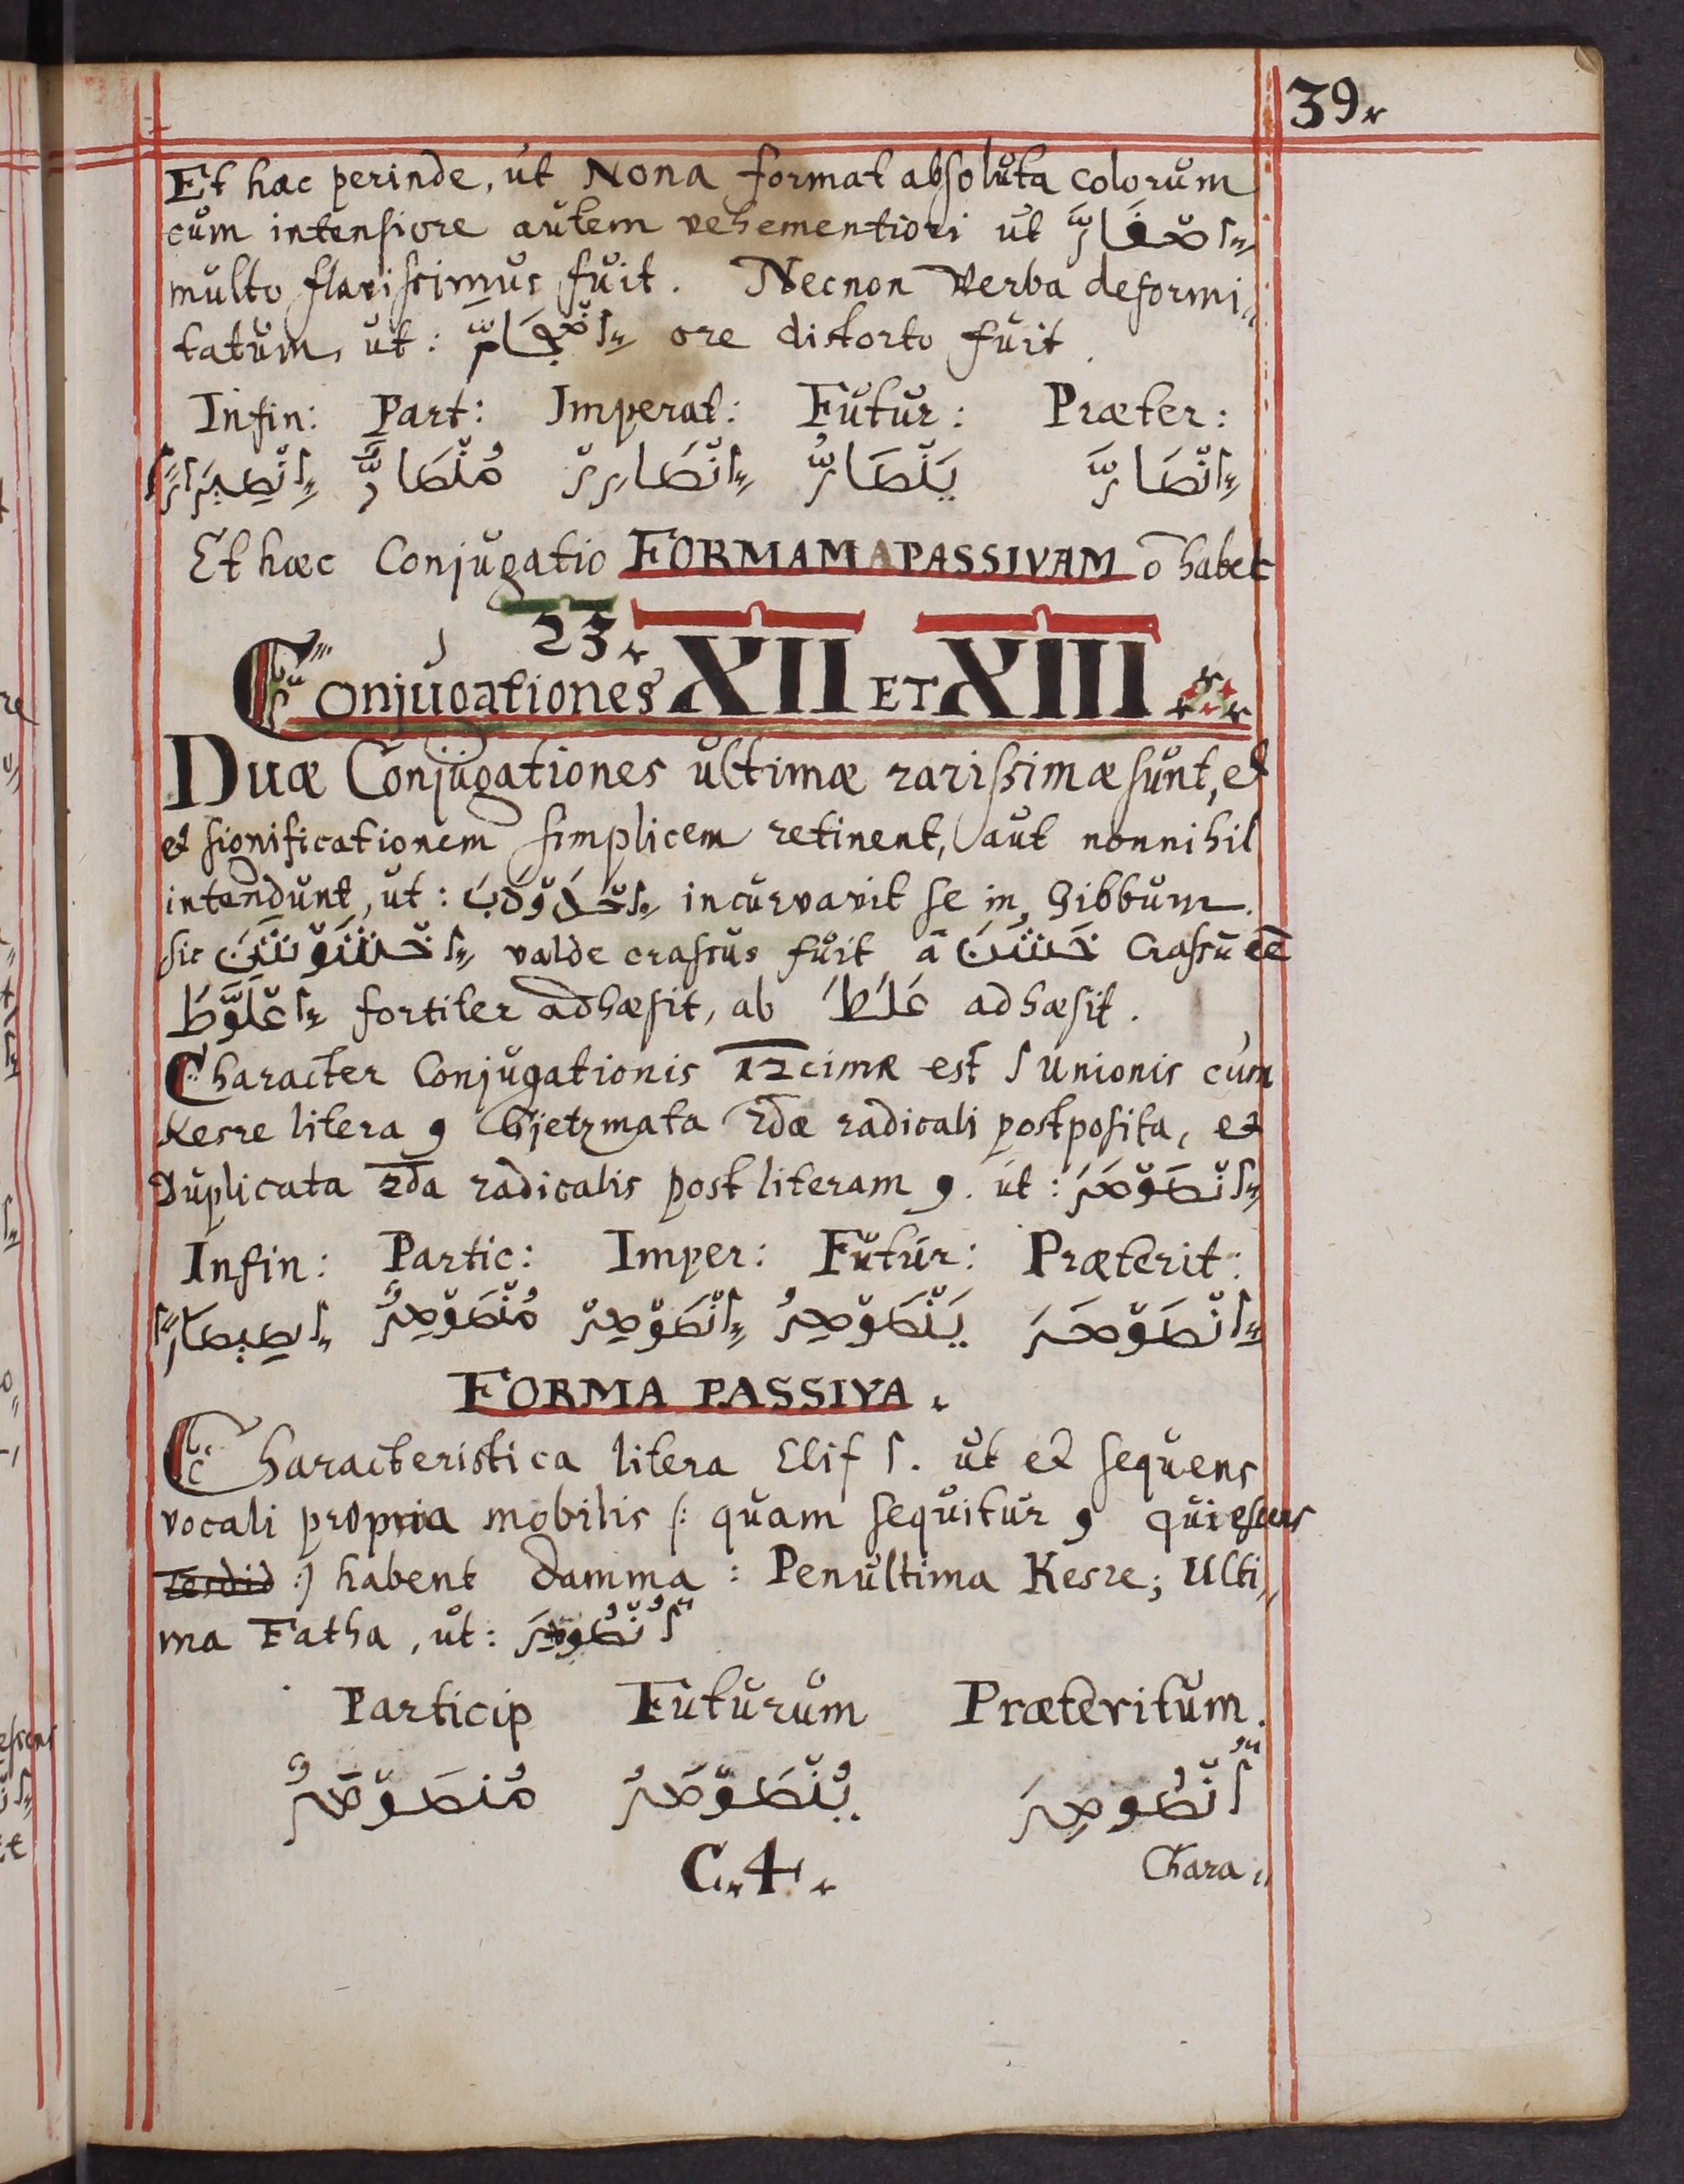 39.
Et hæc perinde, ut Nona format absoluta colorum
cum intensiore autem vehementiori ut اِصْفَارَّ
multo flavissimus fuit. Necnon Verba deformi„
tatum, ut: اِضْجَامَّ ore distorto fuit.
Infin: Part: Imperat: Futur: Præter:
اِنْصَارَّ يَنْصَارُّ اِنْصَارِرْ مُنْصَارٌّ اِنْصِيرَارًا
Et hæc Conjugatio FORMAM PASSIVAM ō habet
23.
Conjugationes XII ET XIII
Duæ Conjugationes ultimæ rarissimæ sunt, et
et significationem simplicem retinent, aut nonnihil
intendunt, ut: اِحْدَوْدَبَ incurvavit se in gibbum.
sic اِخْشَوْشَنَ valde crassus fuit ā خَشَنَ Crassū eē
اِعْلَوَّطَ fortiter adhæsit, ab عَلَطَ adhæsit.
Character Conjugationis 12cimæ est ا unionis cum
Kesre litera و Gjetzmata 2dæ radicali postposita, et
Duplicata 2da radicalis post literam و. ut: اِنْصَوْصَرَ
Infin: Partic: Imper: Futur: Præterit:
اِنْصَوْصَرَ يَنْصَوْصِرُ اِنْصَوْصِرْ مُنْصَوْصِرٌ اِنصِيصَارًا
FORMA PASSIVA.
Characteristica litera Elif ا. ut et sequens
vocali propria mobilis /: quam sequitur و quiescens
:/ habent Damma: Penultima Kesre; Ulti„
ma Fatha, ut: اُنْصُوصِرَ
Particip Futurum Præteritum.
اُنْصُوصِرَ يُنْصَوْصَرُ مُنصَوْصَرٌ
C.4.
Chara„